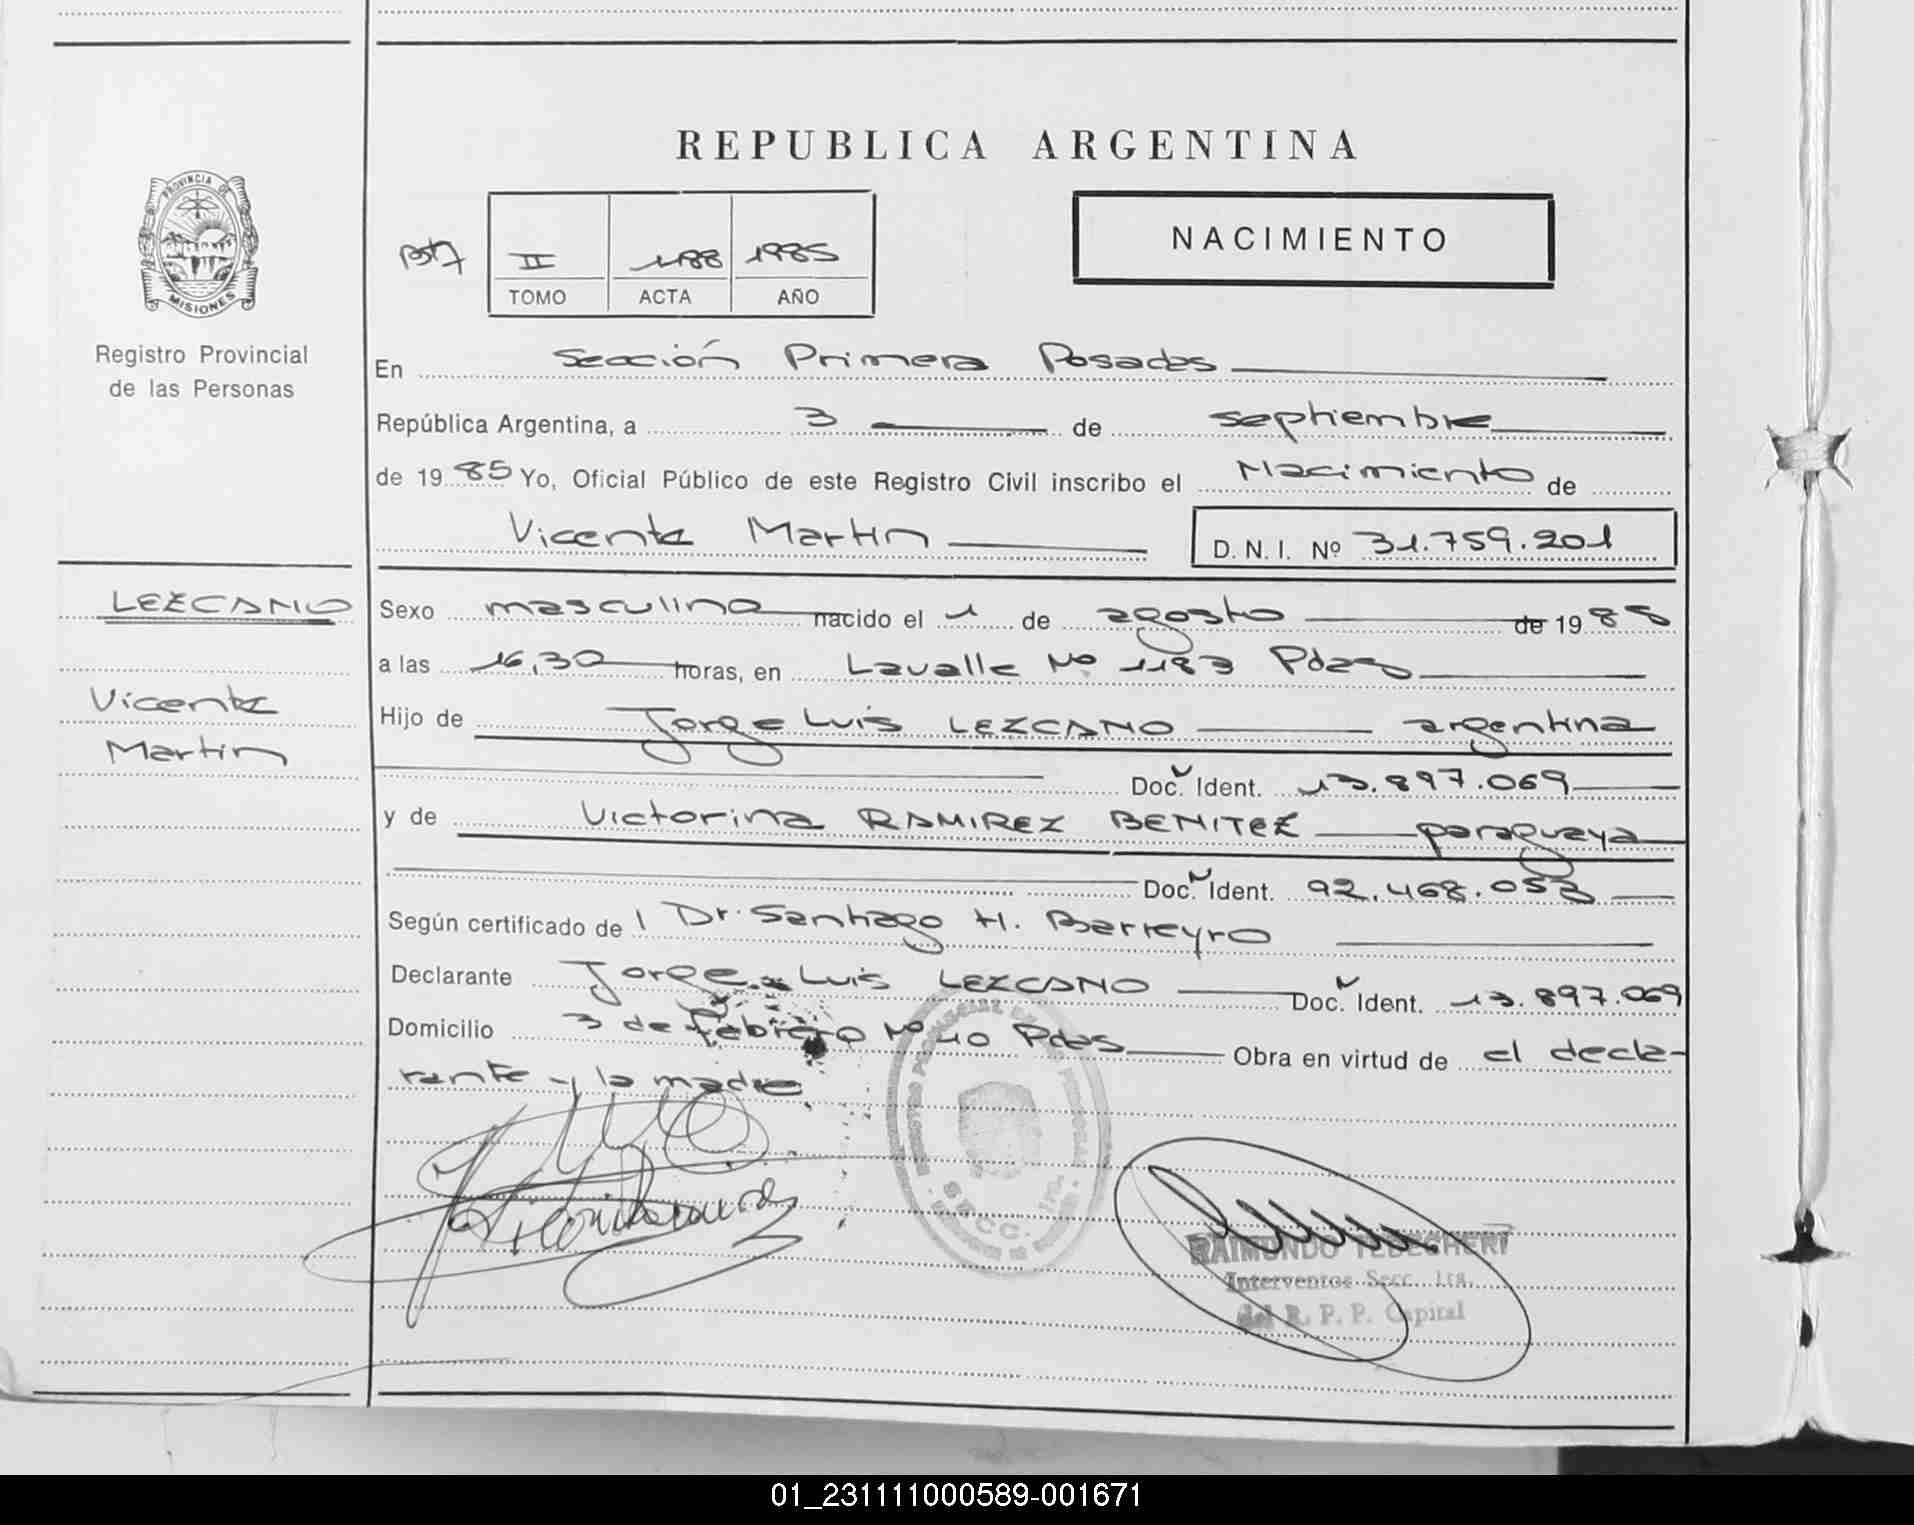 REPUBLICA ARGENTINA
PROVINCIA DE
MISIONES
Registro Provincial
de las Personas
II 1188 1985
TOMO ACTA AÑO
NACIMIENTO
En Sección Primera Posadas
República Argentina, a 3 de septiembre
de 1985 Yo, Oficial Público de este Registro Civil inscribo el Nacimiento de
Vicente Martin D. N. I. Nº 31.759.201
LEZCANO
Vicente
Martin
Sexo masculino nacido el 1 de agosto de 1985
a las 16,30 horas, en Lavalle Nº 1183 Pdas
Hijo de Jorge Luis LEZCANO argentina
Doc. Ident. 13.897.069
y de Victorina RAMIREZ BENITEZ paraguaya
Doc. Ident. 92.468.053
Según certificado de l Dr. Santiago H. Barreyro
Declarante Jorge Luis LEZCANO Doc. Ident. 13.897.069
Domicilio 3 de febrero Nº 40 Pdas Obra en virtud de el decla-
rante y la madre
SECC. 1ra.
RAIMUNDO TEDECHERI
Interventor Secc. 1ra.
del R. P. P. Capital
01_231111000589-001671